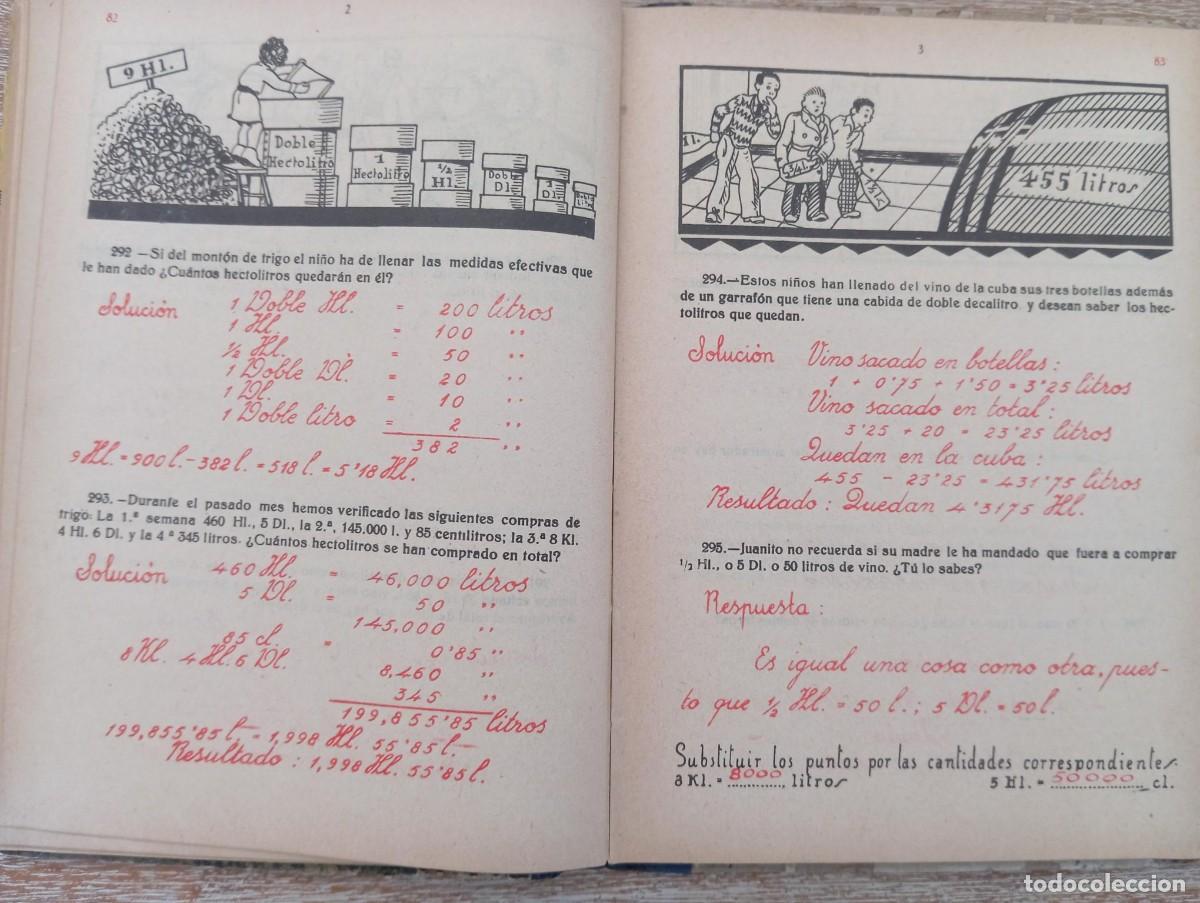 82
2
9 Hl.
Doble
Hectolitro
1
Hectolitro
1/2
Hl.
Doble
Dl.
1
Dl.
292 —Si del montón de trigo el niño ha de llenar las medidas efectivas que
le han dado ¿Cuántos hectolitros quedarán en él?
Solución 1 Doble Hl. = 200 litros
1 Hl. = 100 ,,
1/2 Hl. = 50 ,,
1 Doble Dl. = 20 ,,
1 Dl. = 10 ,,
1 Doble litro = 2 ,,
382 ,,
9 Hl. = 900 l. - 382 l. = 518 l. = 5'18 Hl.
293. —Durante el pasado mes hemos verificado las siguientes compras de
trigo: La 1.ª semana 460 Hl., 5 Dl., la 2.ª, 145.000 l. y 85 centilitros; la 3.ª 8 Kl.
4 Hl. 6 Dl. y la 4 ª 345 litros. ¿Cuántos hectolitros se han comprado en total?
Solución 460 Hl. = 46,000 litros
5 Dl. = 50 ,,
145,000 ,,
85 cl. = 0'85 ,,
8 Kl. 4 Hl. 6 Dl. 8,460
345 ,,
199,855'85 litros
199,855'85 l. = 1,998 Hl. 55'85 l.
Resultado : 1,998 Hl. 55'85 l.
3
83
3/4 l.
455 litros
294.—Estos niños han llenado del vino de la cuba sus tres botellas además
de un garrafón que tiene una cabida de doble decalitro y desean saber los hec-
tolitros que quedan.
Solución Vino sacado en botellas :
1 + 0'75 + 1'50 = 3'25 litros
Vino sacado en total :
3'25 + 20 = 23'25 litros
Quedan en la cuba :
455 - 23'25 = 431'75 litros
Resultado : Quedan 4'3175 Hl.
295.—Juanito no recuerda si su madre le ha mandado que fuera a comprar
1/2 Hl., o 5 Dl. o 50 litros de vino. ¿Tú lo sabes?
Respuesta :
Es igual una cosa como otra, pues-
to que 1/2 Hl. = 50 l. ; 5 Dl. = 50 l.
Substituir los puntos por las cantidades correspondientes.
8 Kl. = 8000 litros 5 Hl. = 50000 cl.
todocoleccion